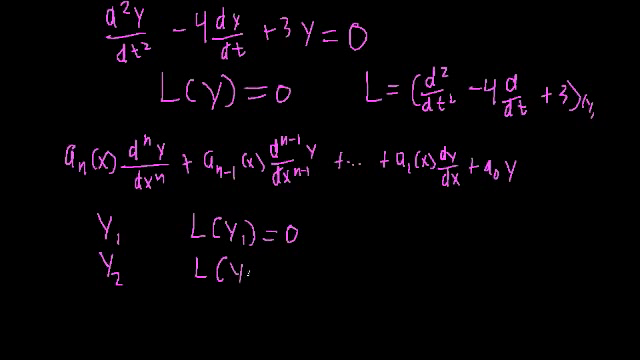 d²y/dt² - 4 dy/dt + 3y = 0
L(y) = 0    L = (d²/dt² - 4 d/dt + 3)(y)
aₙ(x) dⁿy/dxⁿ + aₙ₋₁(x) dⁿ⁻¹y/dxⁿ⁻¹ + ... + a₁(x) dy/dx + a₀ y
y₁    L(y₁) = 0
y₂    L(y